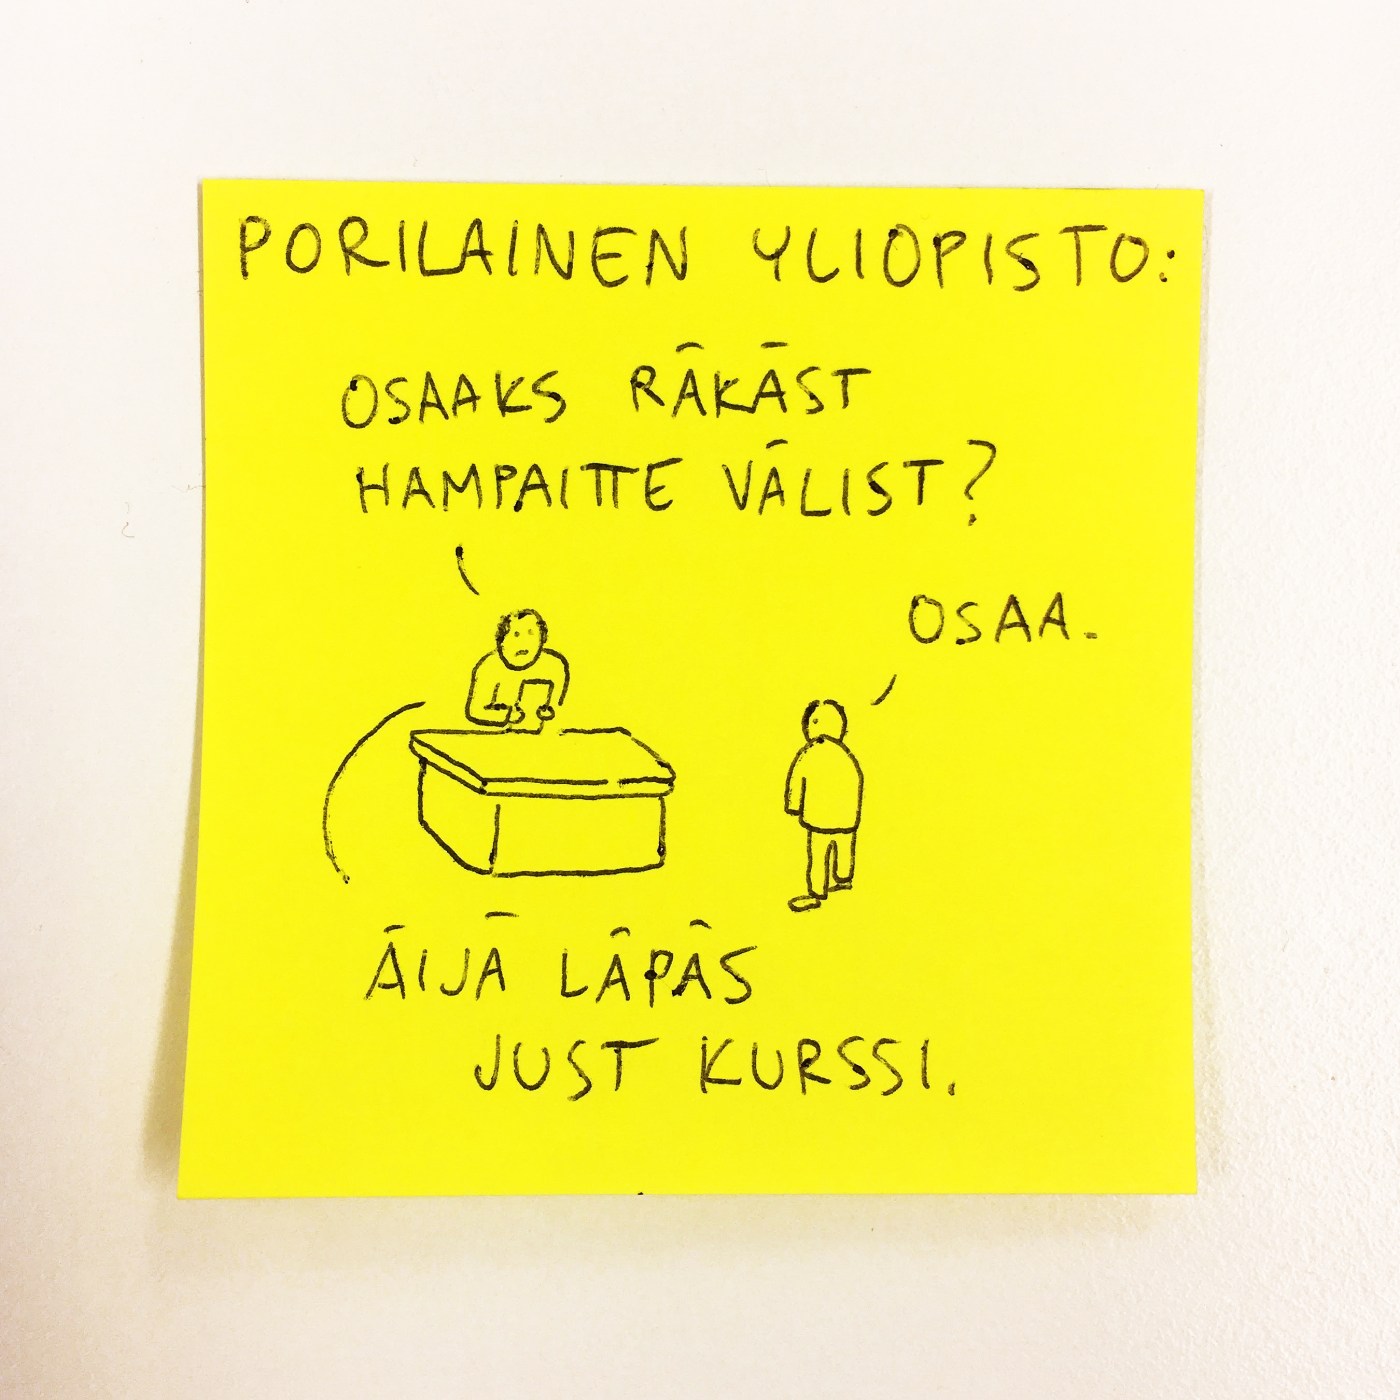 PORILAINEN YLIOPISTO:
OSAAKS RÄKÄST
HAMPAITTE VÄLIST?
OSAA.
ÄIJÄ LÄPÄS
JUST KURSSI.